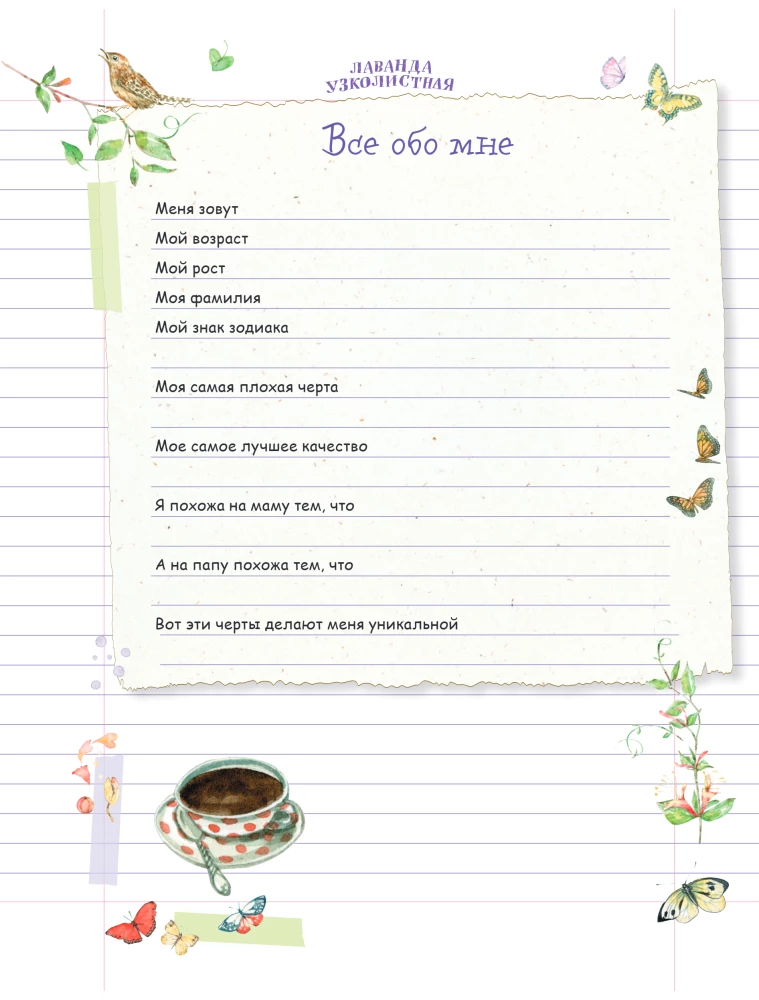 ЛАВАНДА
УЗКОЛИСТНАЯ
Все обо мне
Меня зовут
Мой возраст
Мой рост
Моя фамилия
Мой знак зодиака
Моя самая плохая черта
Мое самое лучшее качество
Я похожа на маму тем, что
А на папу похожа тем, что
Вот эти черты делают меня уникальной